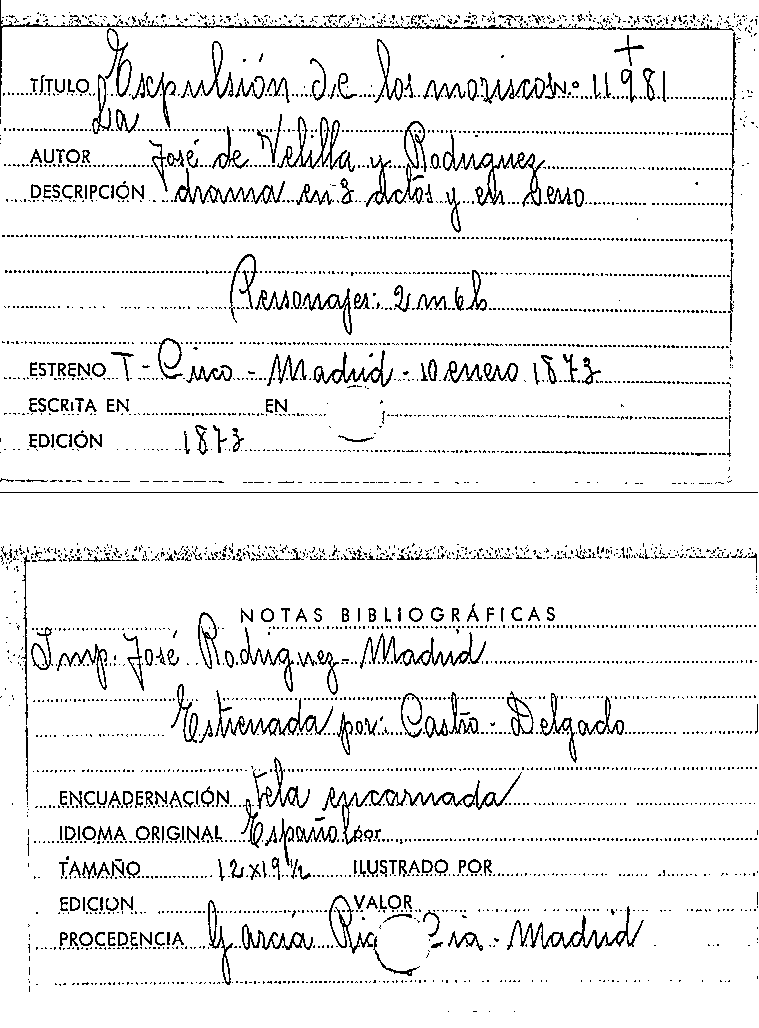 TÍTULO Expulsión de los moriscos Nº 11981
La
AUTOR José de Velilla y Rodriguez
DESCRIPCIÓN drama en 3 actos y en verso
Personajes: 2 m 6 h
ESTRENO T - Circo - Madrid - 10 enero 1873
ESCRITA EN EN
EDICIÓN 1873
NOTAS BIBLIOGRÁFICAS
Imp. José Rodriguez - Madrid
Estrenada por: Castro - Delgado
ENCUADERNACIÓN tela encarnada
IDIOMA ORIGINAL Español por
TAMAÑO 12x19 1/2 ILUSTRADO POR
EDICION VALOR
PROCEDENCIA García - Madrid